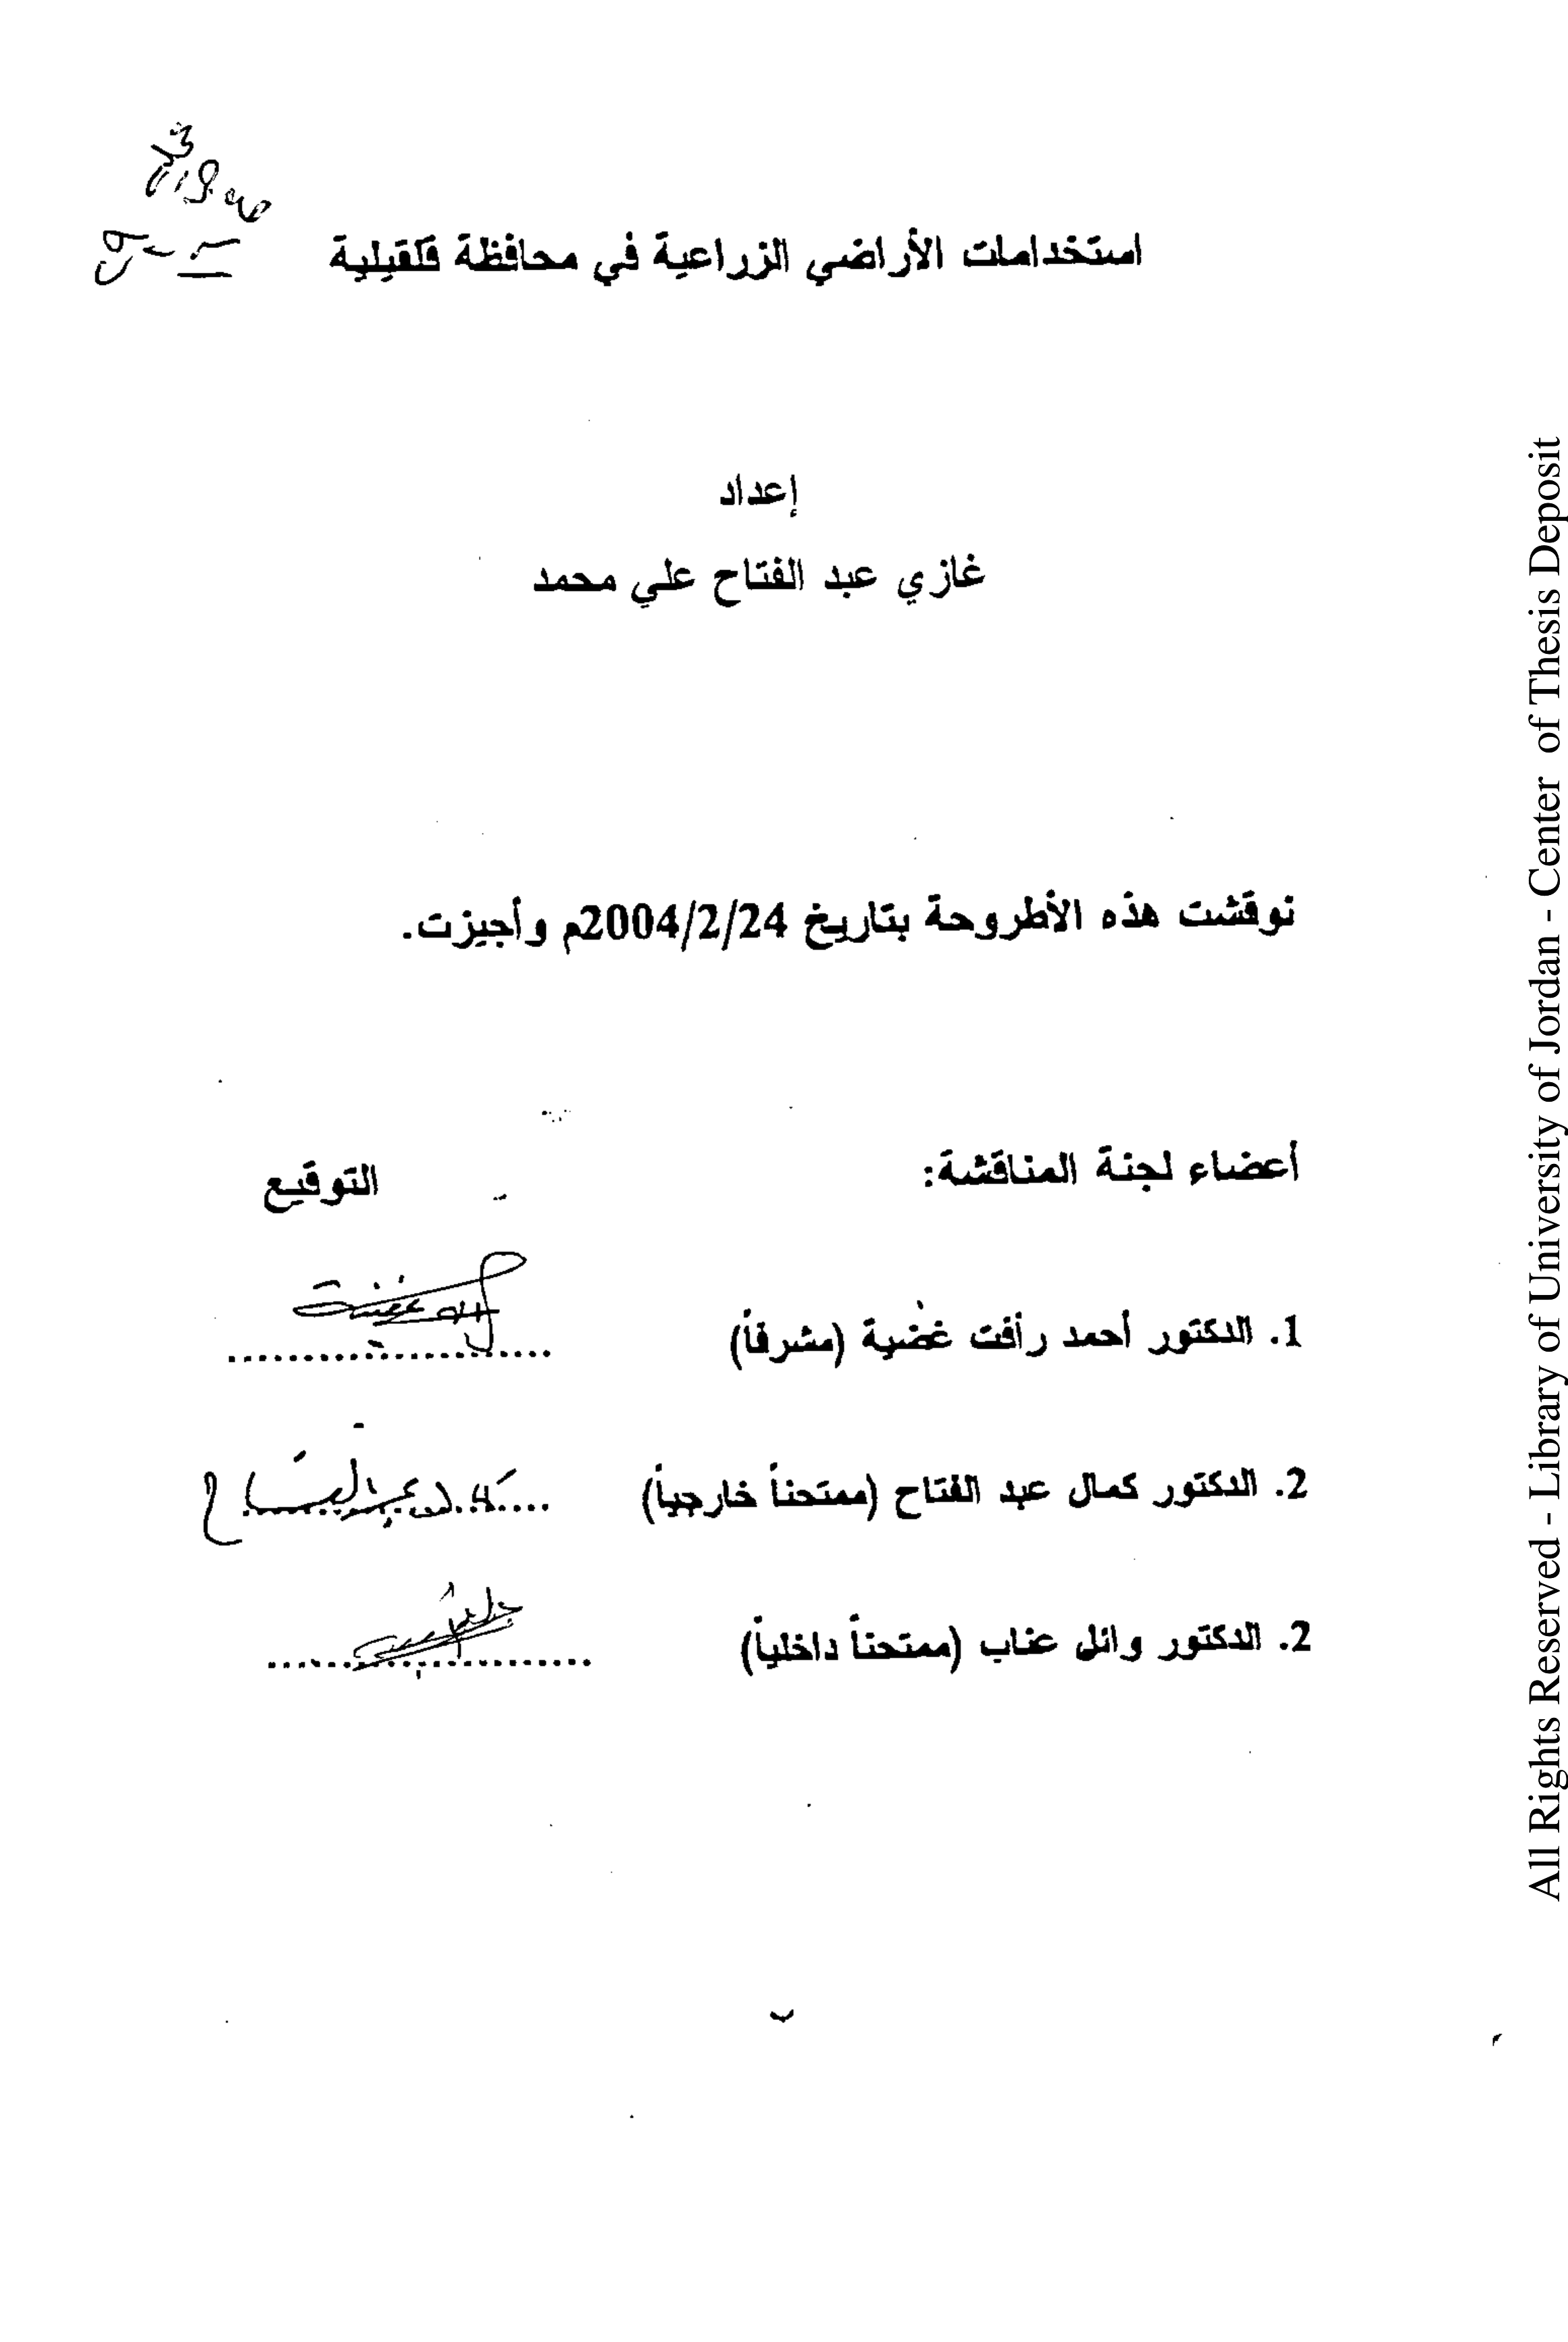 استخدامات الأراضي الزراعية في محافظة قلقيلية
إعداد
غازي عبد الفتاح علي محمد
نوقشت هذه الأطروحة بتاريخ 2004/2/24م وأجيزت.
أعضاء لجنة المناقشة:
التوقيع
1. الدكتور أحمد رأفت غضية (مشرفاً)
2. الدكتور كمال عبد الفتاح (ممتحناً خارجياً)
كمال عبد الفتاح
2. الدكتور وائل عناب (ممتحناً داخلياً)
All Rights Reserved - Library of University of Jordan - Center of Thesis Deposit